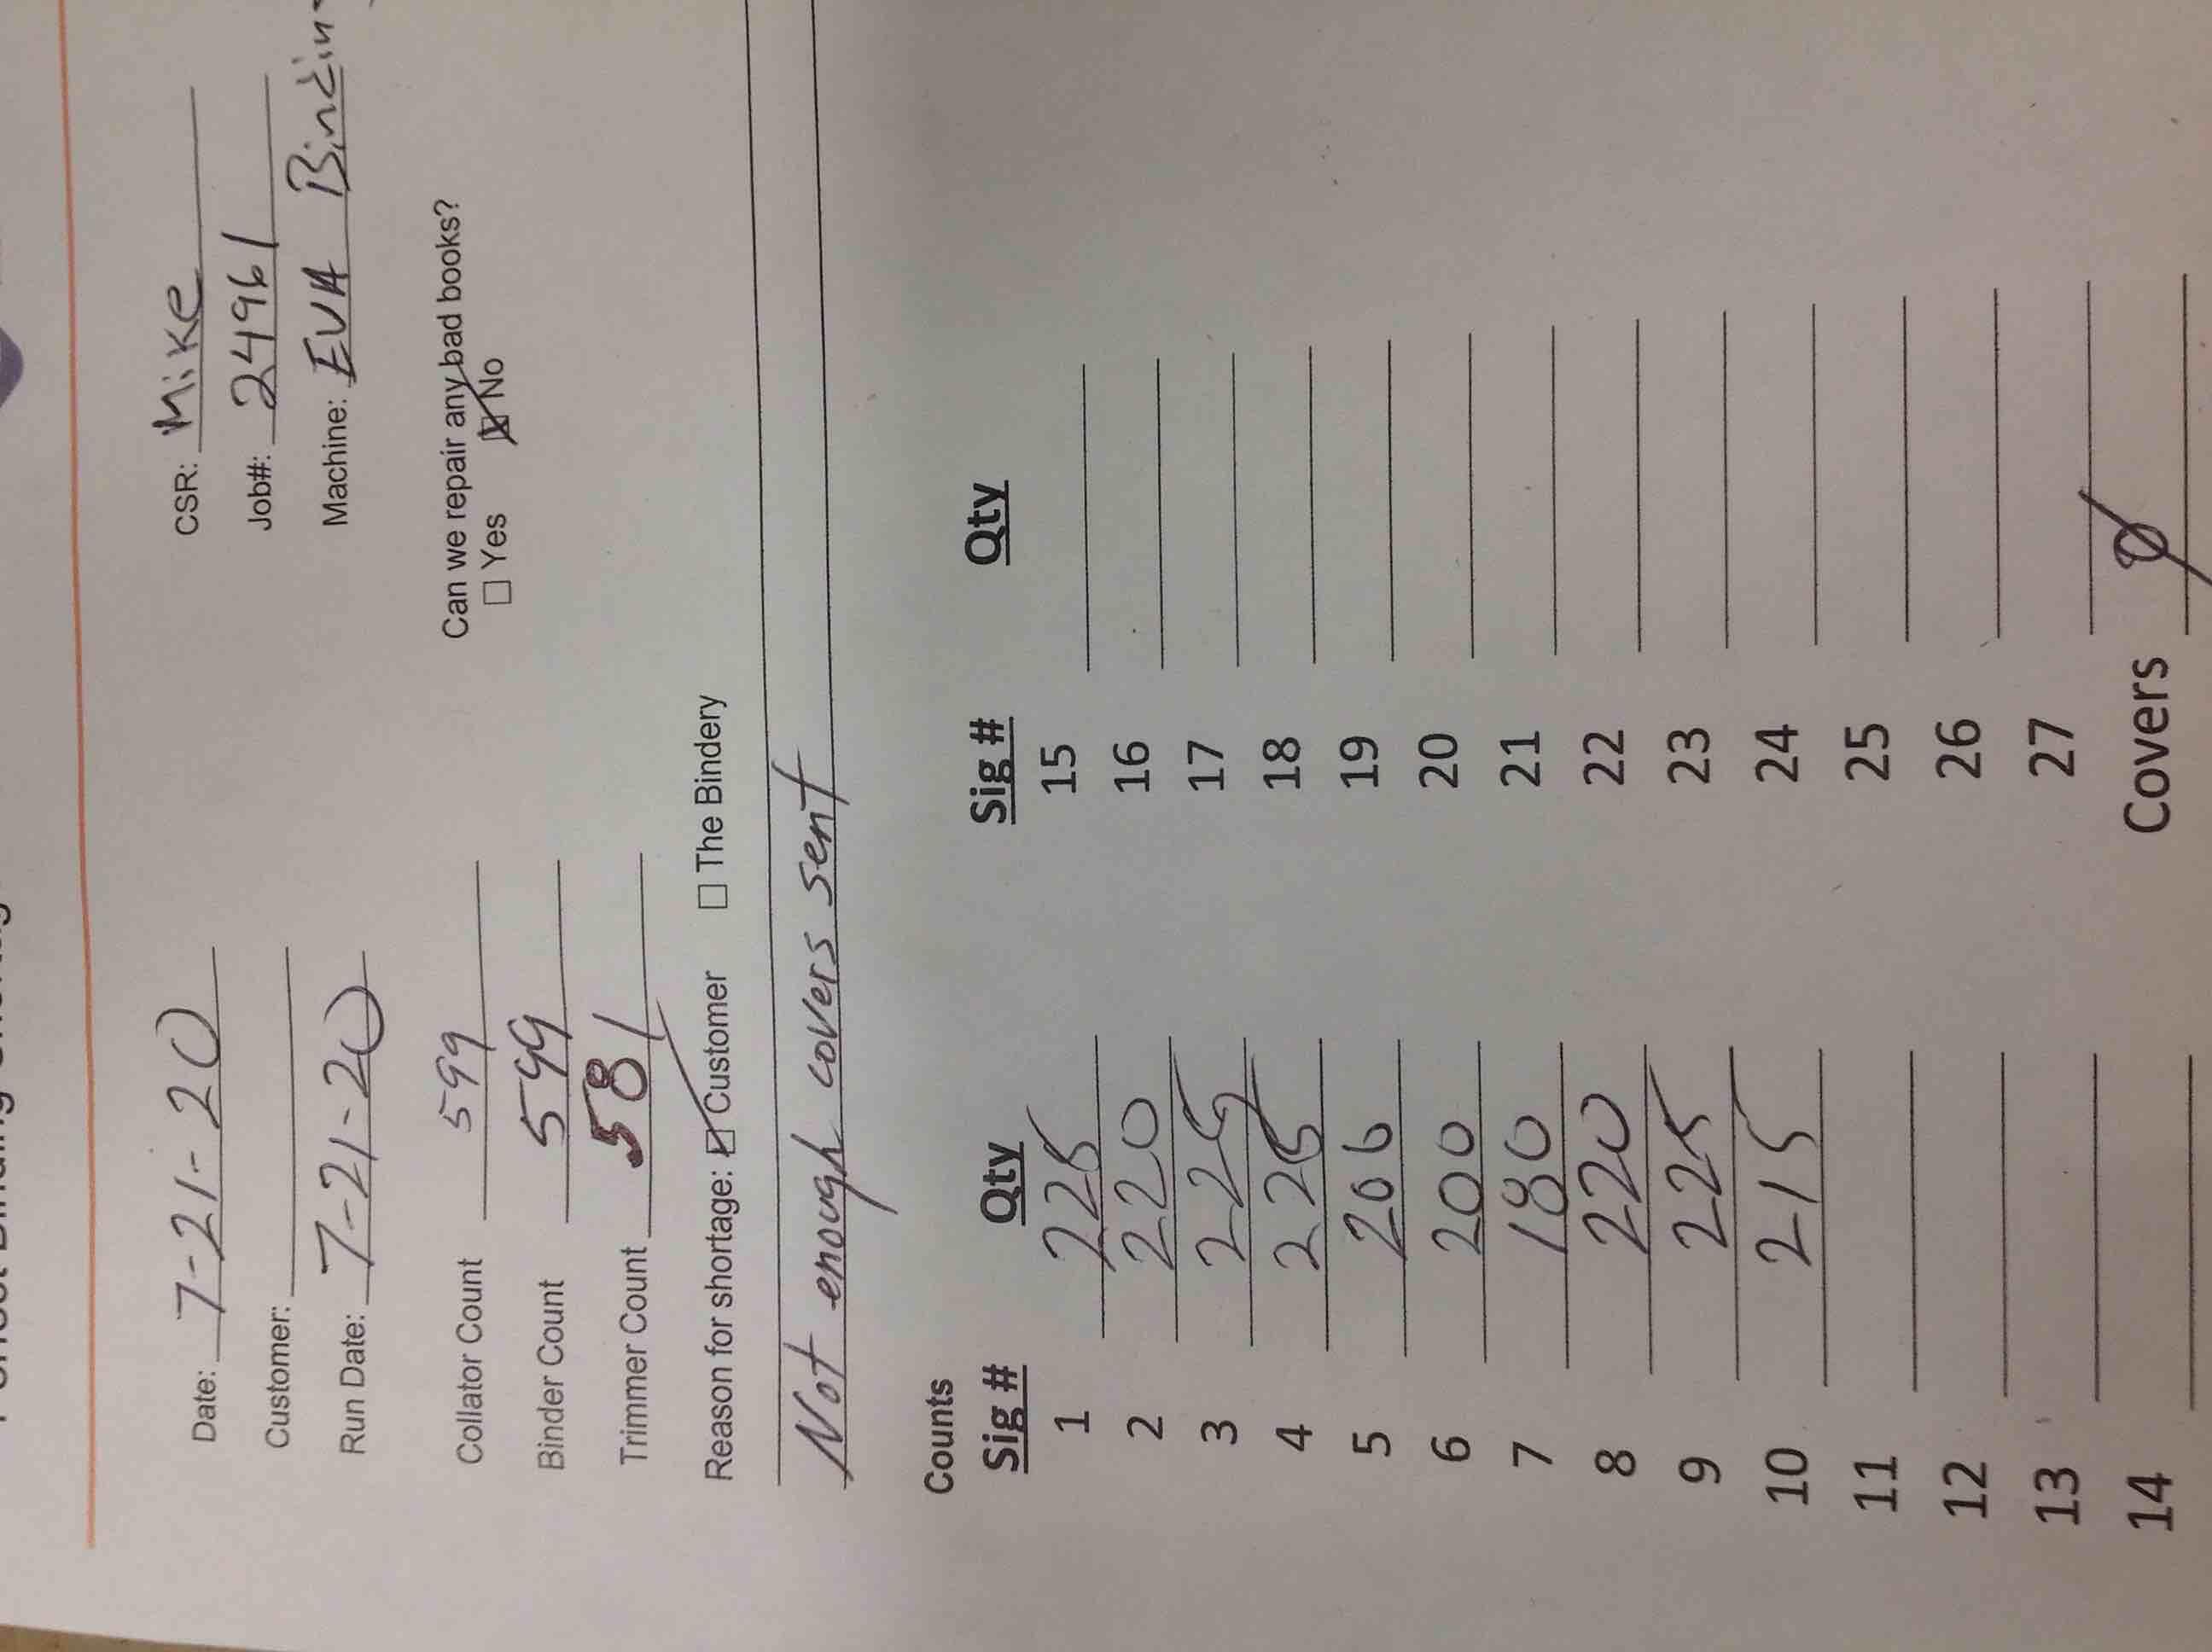 Date: 7-21-20 CSR: Mike
Customer: Job#: 24961
Run Date: 7-21-20 Machine: EVA Bindin
Collator Count 599 Can we repair any bad books?
☐ Yes ☒ No
Binder Count 599
Trimmer Count 581
Reason for shortage: ☑ Customer ☐ The Bindery
Not enough covers sent
Counts
Sig # Qty Sig # Qty
1 225 15
2 220 16
3 225 17
4 225 18
5 206 19
6 200 20
7 180 21
8 220 22
9 225 23
10 215 24
11 25
12 26
13 27
14 Covers Ø